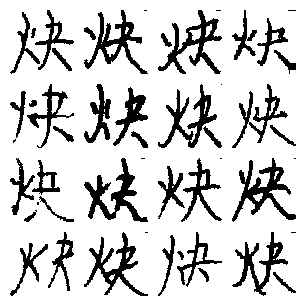 炔炔炔炔
炔炔炔炔
炔炔炔炔
炔炔炔炔